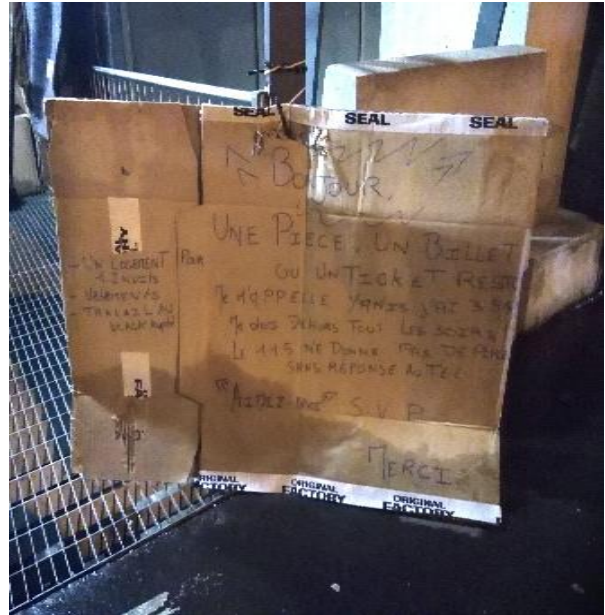 SEAL SEAL SEAL
BONJOUR,
UNE PIECE, UN BILLET
OU UN TICKET REST
JE M'APPELLE YANIS J'AI
JE DORS DEHORS TOUT LES SOIRS
LE 115 NE DONNE PAS DE PLACE
SANS RÉPONSE AU TEL
"AIDEZ-MOI" S.V.P
MERCI
POUR
- UN LOGEMENT
1 NUIT
- VETEMENTS
- TRAVAIL AU
BLACK
ORIGINAL FACTORY
ORIGINAL FACTORY